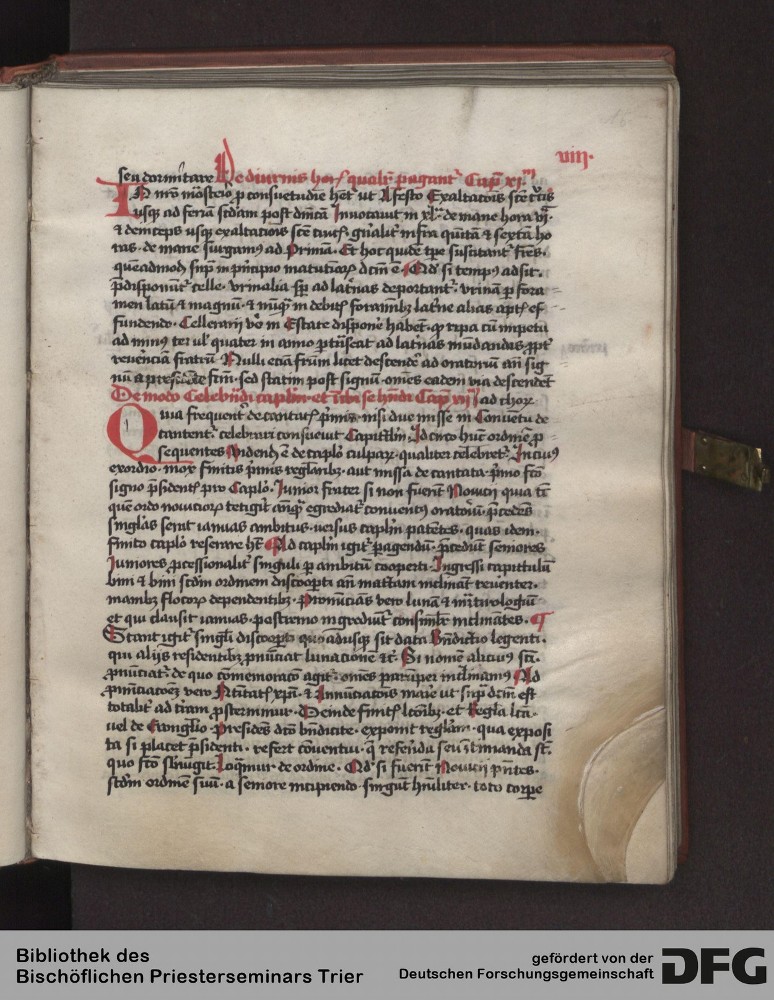 viij.
seu dormitare De diurnis hor qualr pagant Cap xj
IN nro mosterio p consuetudie hetr ut A festo Exaltacois scte crucis
usqz ad feria scdam post dnicam Inuocauit in xl de mane hora vj
& deinceps usqz exaltacionis scte crucis gnalit infra quinta & sexta ho
ras de mane surgamus ad Primam Et hoc quide tpe suscitant fres
queadmodu sup in pncipio matutinar dcm e Qd si tempus adsit
pdisponunt celle vrinalia sp ad latrinas deportant vrinam p fora
men latu & magnu & nuqz in debitis foraminibz latrine alias aptis ef
fundendo Cellerarij vo in Estate disponere habet qd ripa cu impetu
ad minus ter ul quater in anno ptranseat ad latrinas mundandas propt
reuerencia fratru Nulli ecia frum licet descende ad oratoriu an sig
nu a presidente fcm sed statim post signu omes eadem via descendet
De modo Celebrandi caplm et ibi se hndi Cap vij ad chor
Quia frequenter decantatis primis nisi due misse in Conuetu de
cantent celebrari consueuit Capitlm Id circo huc ordine p
sequentes Videndu e de caplo culpar qualiter celebret In cuius
exordio mox finitis pmis reglaribz aut missa decantata pmo fco
signo psidentis pro Caplo Iunior frater si non fuerit Nouicij quia tc
que ordo nouicior tetigit anqz egrediat conuentus oratoriu pcedes
singlas serit ianuas ambitus versus caplm patetes quas idem
finito caplo reserare ht Ad caplm igit pagendu pcedut seniores
Iuniores pcessionalit singuli p ambitum cooperti Ingressi capittulu
bini & bini scdm ordinem discooperti an maiestam inclinant reuenter
manibz flocor dependentibz Pronuncians vero luna & mrtirologiu
et qui clausit ianuas postremo ingrediunt consimilr inclinates
Stant igit singli discooperto quousqz sit data Bndictio legenti
qui alijs residentibz pnunciat lunacione &c Si nomen alicuius sti
pnunciat de quo comemoracio agit omes parumper inclinamus Ad
pnunciacoez vero Natitatis xpi & Annunciacois marie ut sup dcm est
totalit ad tram psternimur Deinde finitis lconibz et Regla lcta
uel de Euanglio Presides dco bndicite exponit reglam qua exposi
ta si placet psidenti refert conuentui q referenda seu intimanda st
quo fco sbiugit Loqmur de ordine Qd si fuerit Nouicij pntes
scdm ordine suu a seniore incipiendo singuli humiliter toto corpe
Bibliothek des
Bischöflichen Priesterseminars Trier
gefördert von der
Deutschen Forschungsgemeinschaft DFG